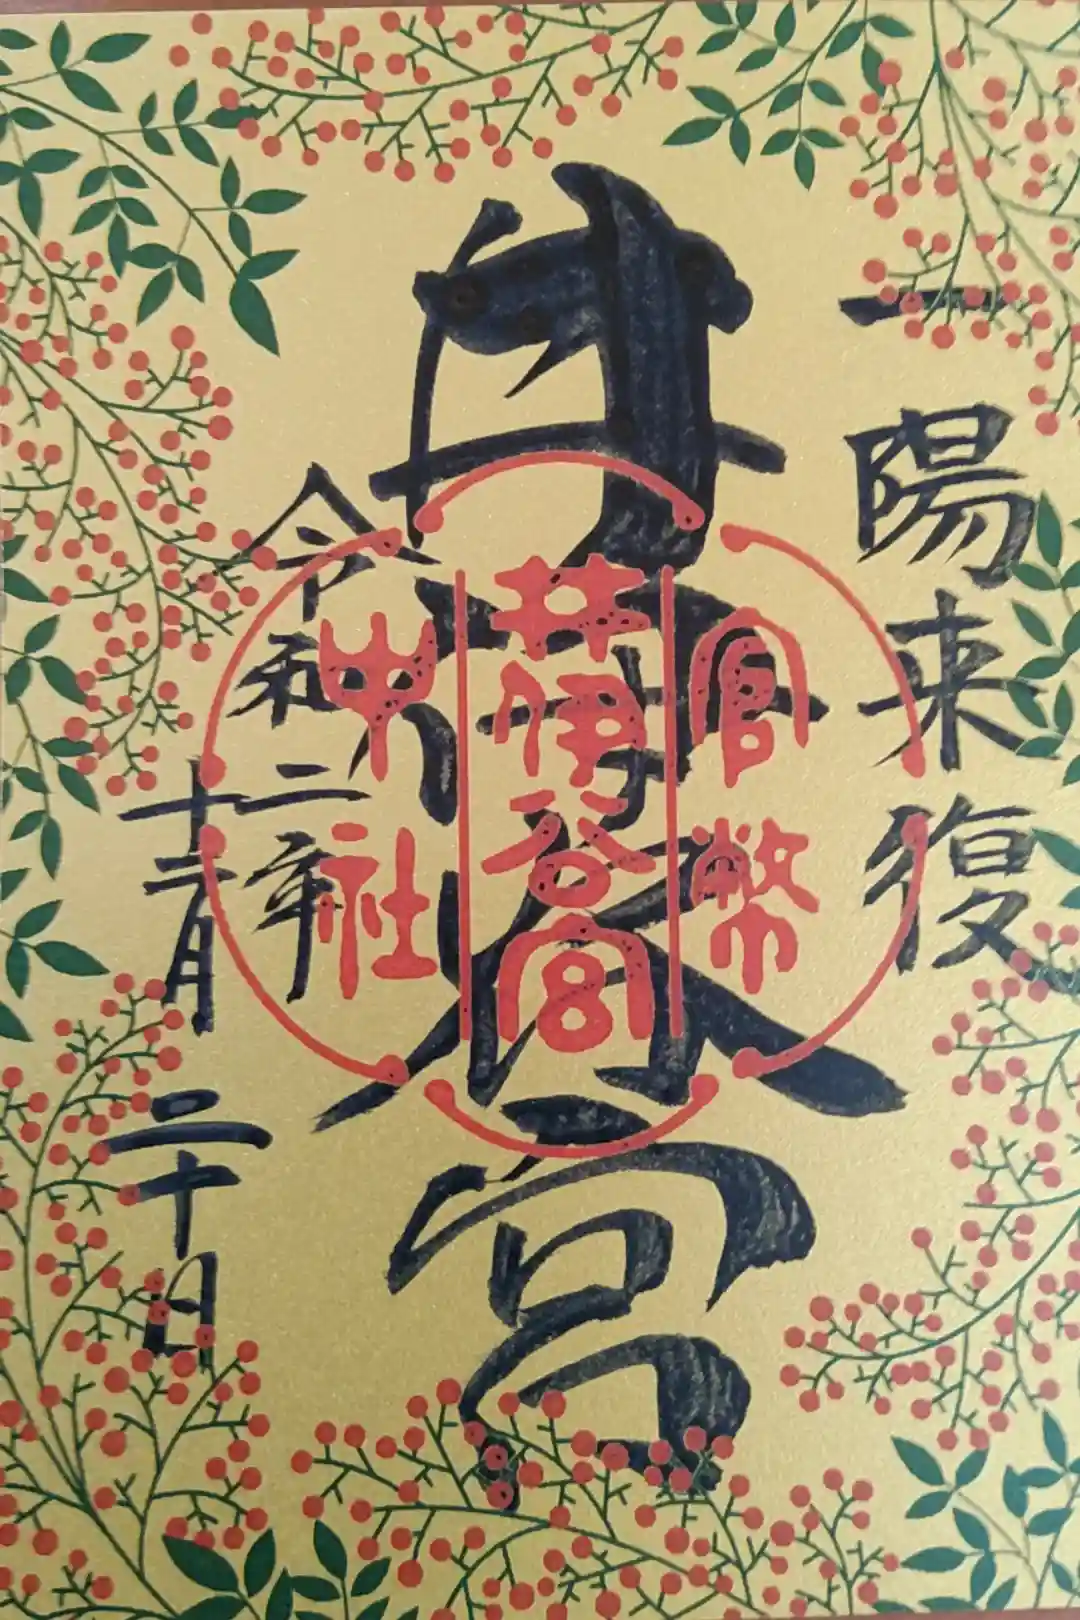 一陽来復
井伊谷宮
官幣
井伊谷宮
中社
令和二年
十二月二十日